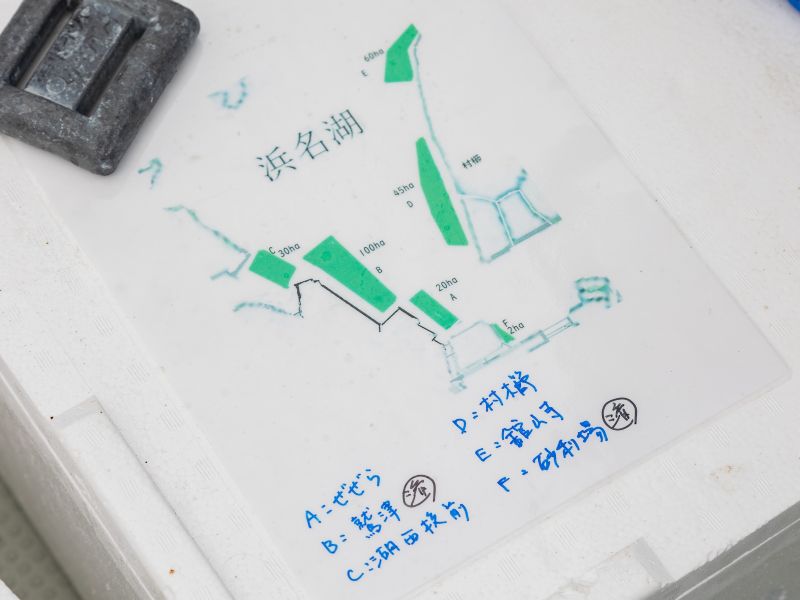 60ha
E
浜名湖
村櫛
45ha
D
C
30ha
100ha
B
20ha
A
F
2ha
D:村櫛
E:舘山寺
F:砂利場
A:ぜぜら
B:鷲津
C:湖西校前